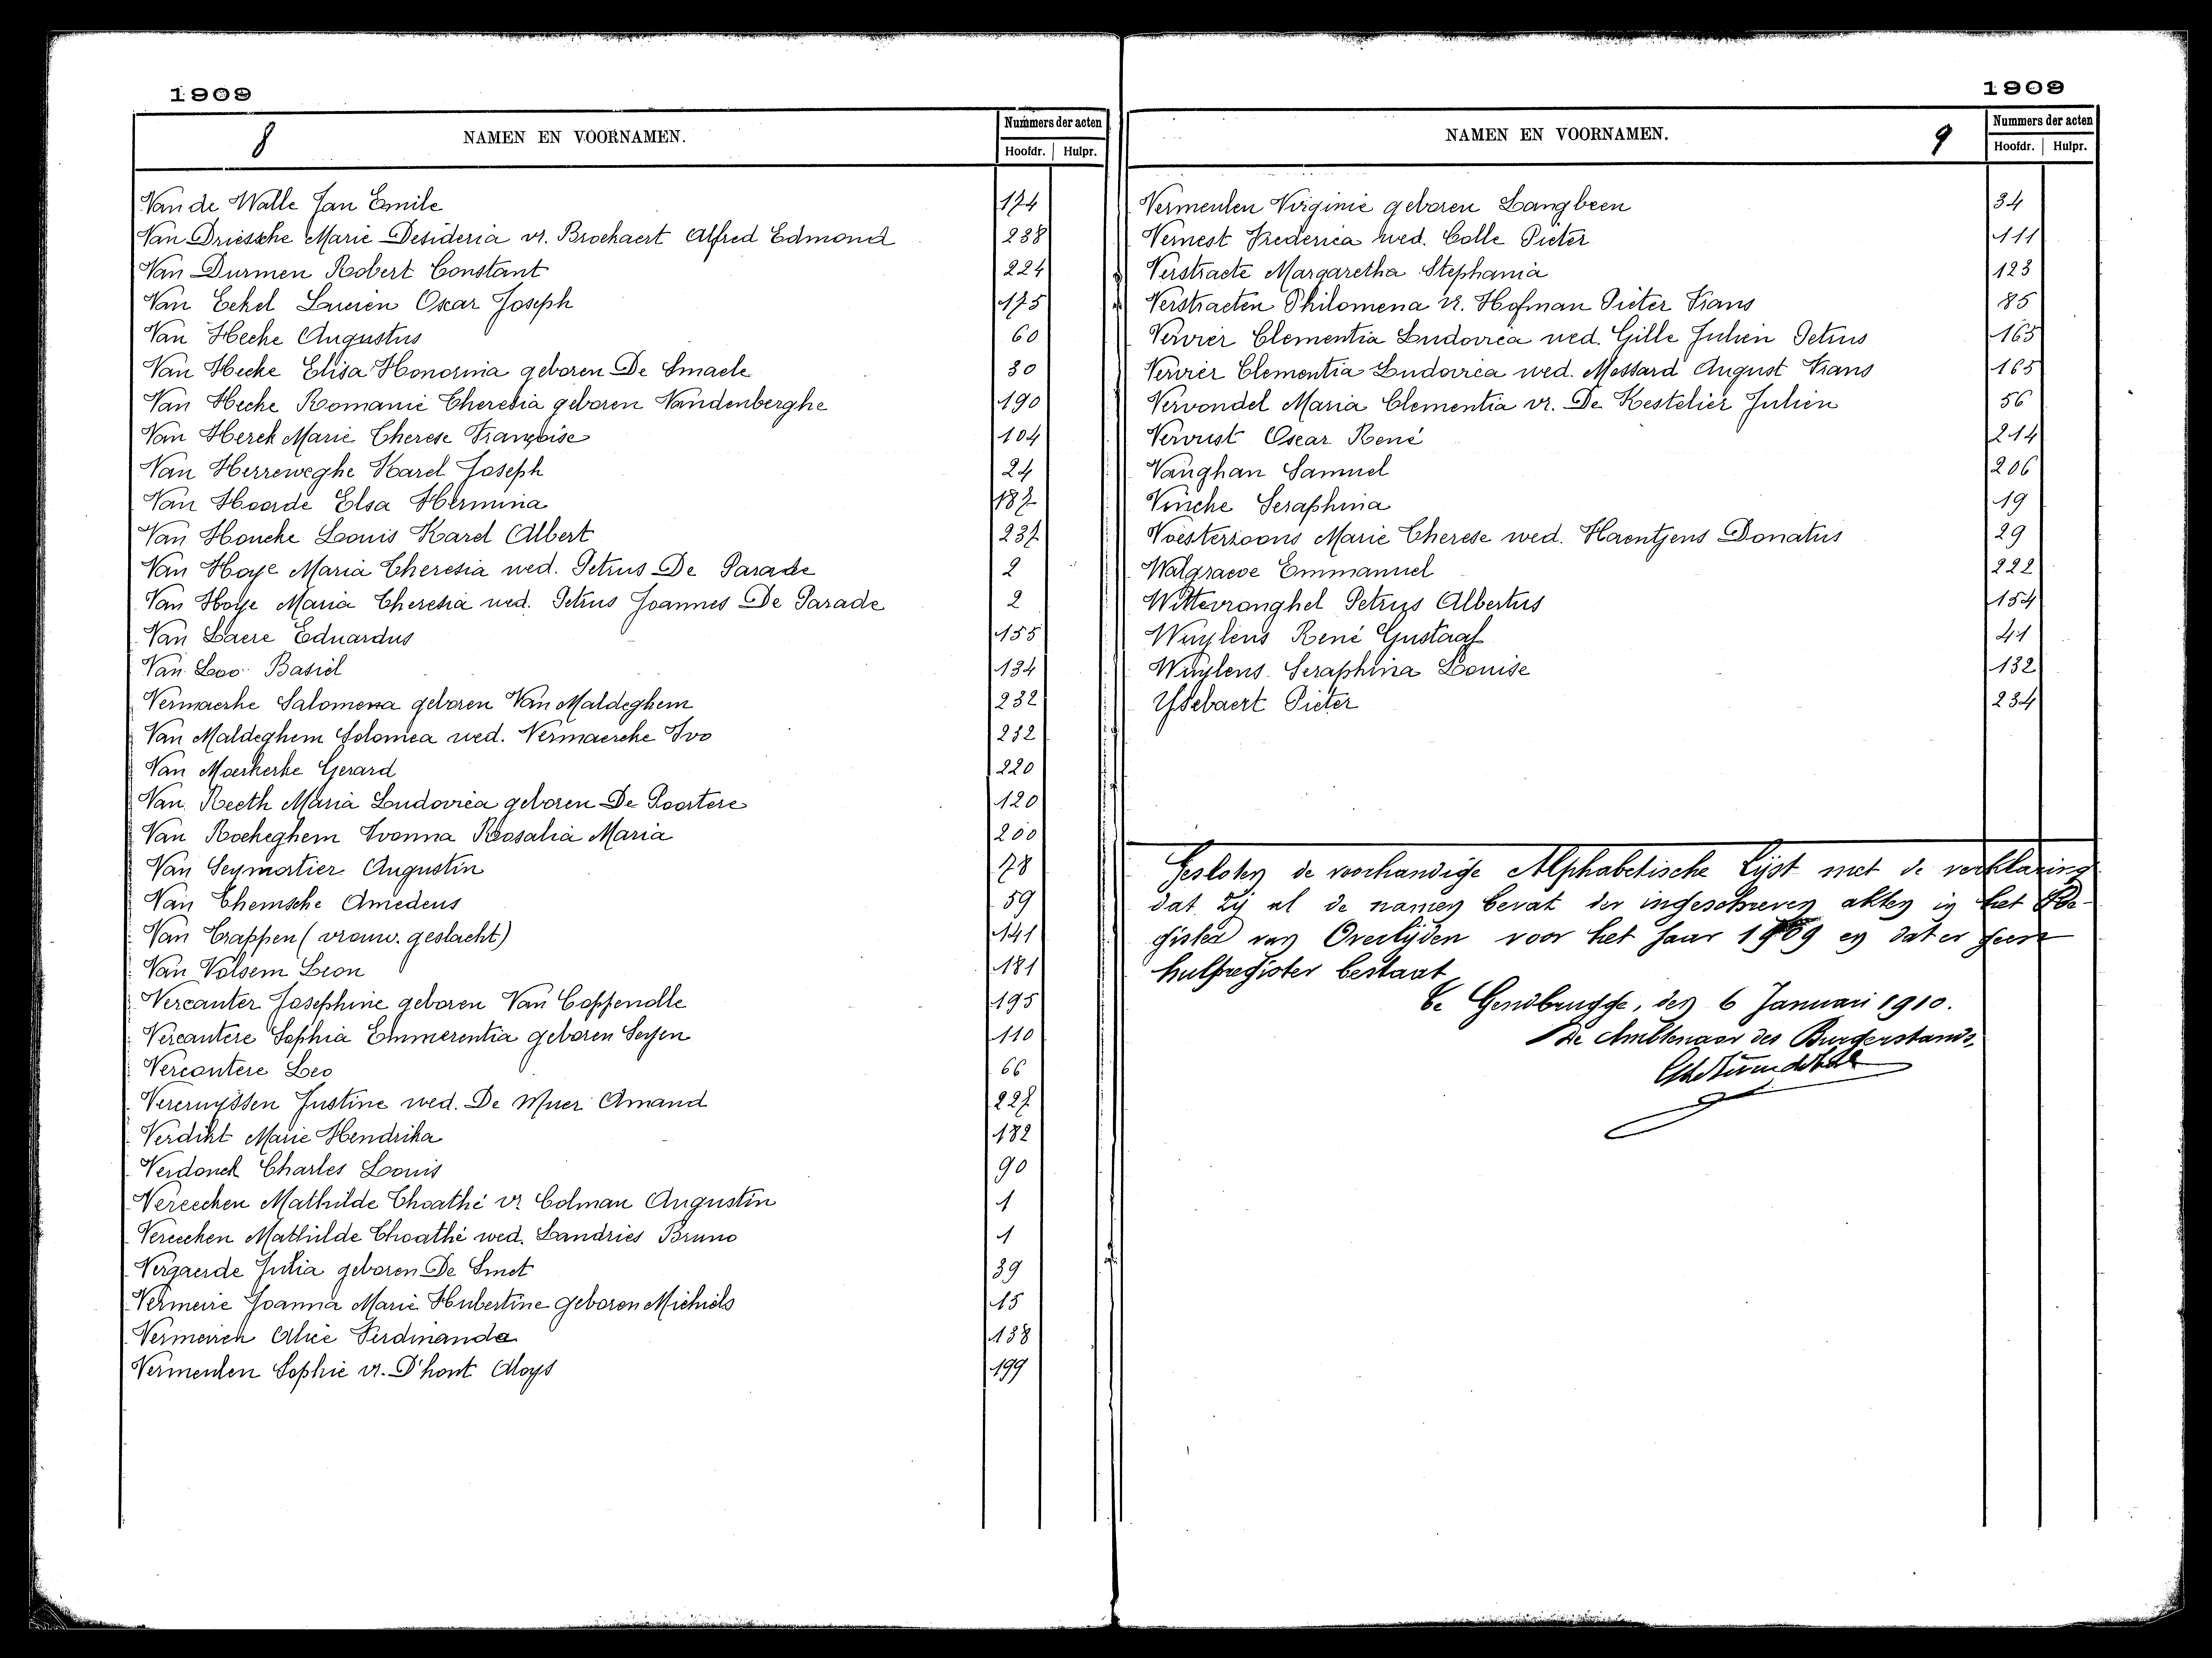 1909
8 NAMEN EN VOORNAMEN. Nummers der acten
Hoofdr. Hulpr.
Van de Walle Jan Emile 174
Van Driessche Marie Desideria vr. Brockaert Alfred Edmond 238
Van Durmen Robert Constant 224
Van Eekel Lucien Oscar Joseph 175
Van Hecke Augustus 60
Van Hecke Elisa Honorina geboren De Smaele 30
Van Hecke Romanie Theresia geboren Vandenberghe 190
Van Herck Marie Therese Françoise 104
Van Herreweghe Karel Joseph 24
Van Hoorde Elsa Hermina 187
Van Houcke Louis Karel Albert 237
Van Hoye Maria Theresia wed. Petrus De Parade 2
Van Hoye Maria Theresia wed. Petrus Joannes De Parade 2
Van Laere Eduardus 155
Van Loo Basiel 134
Vermaerke Salomena geboren Van Maldeghem 232
Van Maldeghem Solomea wed. Vermaercke Ivo 232
Van Moerkerke Gerard 220
Van Reeth Maria Ludovica geboren De Poortere 120
Van Rockeghem Ivonna Rosalia Maria 200
Van Seymortier Augustin 78
Van Themsche Amedeus 59
Van Trappen (vrouw. geslacht) 141
Van Volsem Leon 181
Vercauter Josephine geboren Van Coppenolle 195
Vercautere Sophia Emmerentia geboren Seyen 110
Vercautere Leo 66
Vercruyssen Justine wed. De Muer Amand 227
Verdikt Marie Hendrika 182
Verdonck Charles Louis 90
Vereecken Mathilde Thoathé vr. Colman Augustin 1
Vereecken Mathilde Thoathé wed. Landries Bruno 1
Vergaerde Julia geboren De Smet 39
Vermeire Joanna Marie Hubertine geboren Michiels 15
Vermeiren Alice Ferdinanda 138
Vermeulen Sophie vr. D'hont Aloys 199
1909
NAMEN EN VOORNAMEN. 9 Nummers der acten
Hoofdr. Hulpr.
Vermeulen Virginie geboren Langbeen 34
Vernest Frederica wed. Colle Pieter 111
Verstraete Margaretha Stephania 123
Verstraeten Philomena vr. Hofman Pieter Frans 85
Vervier Clementia Ludovica wed. Gille Julien Petrus 165
Vervier Clementia Ludovica wed. Massard August Frans 165
Vervondel Maria Clementia vr. De Kestelier Julien 56
Vervust Oscar René 214
Vaughan Samuel 206
Vincke Seraphina 19
Voesterzoons Marie Therese wed. Haentjens Donatus 29
Walgraeve Emmanuel 222
Wittevronghel Petrus Albertus 154
Wuylens René Gustaaf 41
Wuylens Seraphina Louise 132
Ysebaert Pieter 234
Gesloten de voorhandige Alphabetische Lijst met de verklaring
dat zij al de namen bevat der ingeschreven akten in het Re-
gister van Overlijden voor het jaar 1909 en dat er geen
hulpregister bestaat
Te Gendbrugge, den 6 Januari 1910.
De Ambtenaar des Burgerstands,